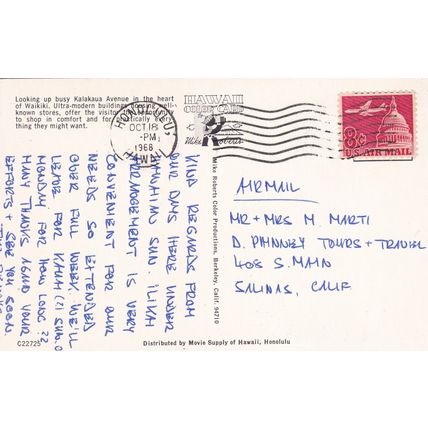 Looking up busy Kalakaua Avenue in the heart
of Waikiki. Ultra-modern buildings housing well-
known stores, offer the visitor
to shop in comfort and for practically every-
thing they might want.
HONOLULU,
OCT 18
-PM
1968
HAWAII
COLOR CARD
Mike Roberts
8¢
U.S. AIR MAIL
KIND REGARDS FROM
OUR DAYS HERE UNDER
SUN. ILIKAI
ARRANGEMENT IS VERY
CONVENIENT FOR OUR
NEEDS SO EXTENDED
OVER FULL WEEK. WE'LL
LEAVE FOR
MONDAY FOR HOW LONG??
MANY THANKS AGAIN YOUR
EFFORTS + SEE YOU SOON.
Mike Roberts Color Productions, Berkeley, Calif. 94710
AIRMAIL
MR + MRS M. MARTI
D. PHINNEY TOURS + TRAVEL
408 S. MAIN
SALINAS, CALIF
C22725
Distributed by Movie Supply of Hawaii, Honolulu